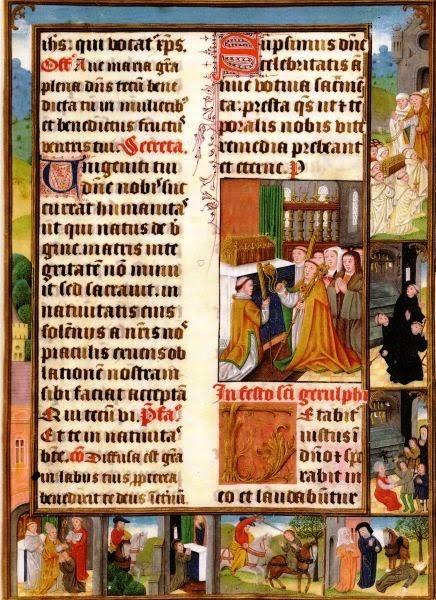 ihs: qui vocat᷑ xp̄s.
Off̄. Aue maria gr̄a
plena dn̄s tecū bene
dicta tu in mulierib᷒
et benedictus fructus
ventris tui. Secreta.
Unigeniti tui
dn̄e nobis suc
currat humanita᷒
ut qui natus de v̄
gine. matris inte
gritatē nō minu
it sed sacrauit. in
natiuitatis eius
solēniis a n̄ris nos
piaculis exuens ob
lationē nostram
sibi faciat acceptā
Qui tecū vi. Pfa᷒
Et te in natiuita᷒
bte. cō Diffusa est gr̄a
in labiis tuis, ppterea
benedixit te deus
Sūpsimus dn̄e
celebritatis ā
nue votiua sacm̄
ta: presta q̄s ut & tē
poralis nobis vite
remedia prebeant
et eterne. P
In festo scī gerulphi
Letabit᷑
iustus in
dn̄o & spe
rabit in
eo et laudabūtur